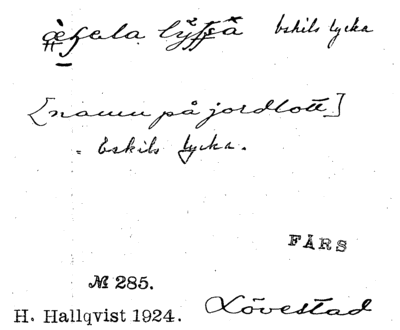 Eskils lycka
[namn på jordlott]
Eskils lycka.
FÄRS
№ 285.
H. Hallqvist 1924. Lövestad